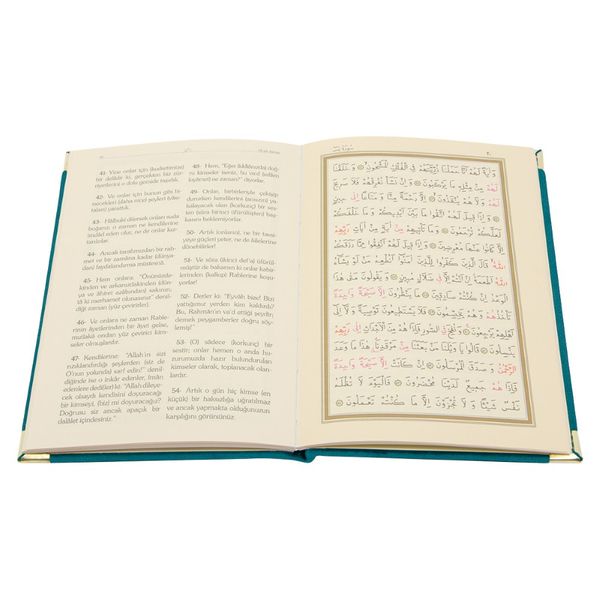 41- Yine onlar için (kudretimize)
bir delildir ki, gerçekten biz zür-
riyetlerini o dolu gemide taşıdık.
42- Ve onlar için bunun gibi bi-
necekleri (daha nice) şeyleri (vası-
taları) yarattık.
43- Hâlbuki dilersek onları suda
boğarız; o zaman ne kendilerine
imdâd eden olur, ne de onlar kur-
tarılırlar.
44- Ancak tarafımızdan bir rah-
met ve bir zamana kadar (dünya-
dan) faydalandırma müstesnâ.
45- Hem onlara: "Önünüzde-
kinden ve arkanızdakinden (dün-
ya ve âhiret azâbından) sakının;
tâ ki merhamet olunasınız" denil-
diği zaman (yüz çevirirler).
46- Ve onlara ne zaman Rable-
rinin âyetlerinden bir âyet gelse,
mutlaka ondan yüz çevirici kim-
seler olmuşlardır.
47- Kendilerine: "Allah'ın sizi
rızıklandırdığı şeylerden (siz de
O'nun yolunda) sarf edin!" denil-
diğinde ise o inkâr edenler, îmân
edenlere dediler ki: "Allah dileye-
cek olsaydı kendisini doyuracağı
bir kimseyi, (biz) mi doyuracağız?
Doğrusu siz ancak apaçık bir
dalâlet içindesiniz."
48- Hem, "Eğer (iddiânızda) doğ-
ru kimseler iseniz, bu vaad (edilen
kıyâmet) ne zaman?" diyorlar.
49- Onlar, birbirleriyle çekişip
dururlarken kendilerini (ansızın) ya-
kalayacak olan (korkunç) bir ses-
ten (sûra birinci üfürülüşten) baş-
kasını beklemiyorlar.
50- Artık (onlar) ne bir tavsi-
yeye güçleri yeter, ne de âilelerine
dönebilirler!
51- Ve sûra (ikinci def'a) üfürül-
müştür de bakarsın ki onlar kabir-
lerinden (kalkıp) Rablerine koşu-
yorlar.
52- Derler ki: "Eyvâh bize! Bizi
yattığımız yerden kim kaldırdı?
Bu, Rahmân'ın va'd ettiği şeydir;
demek peygamberler doğru söyle-
miş!"
53- (O) sâdece (korkunç) bir
sestir; onlar hemen o anda hu-
zurumuzda hazır bulundurulan
kimseler olarak, toplanacak olan-
lardır.
54- Artık o gün hiç kimse (en
küçük) bir haksızlığa uğratılmaz
ve ancak yapmakta olduğunuzun
karşılığını görürsünüz.
وَاٰيَةٌ لَهُمْ اَنَّا حَمَلْنَا ذُرِّيَّتَهُمْ فِي الْفُلْكِ الْمَشْحُونِ ۞ وَخَلَقْنَا
لَهُمْ مِنْ مِثْلِهِ مَا يَرْكَبُونَ ۞ وَاِنْ نَشَأْ نُغْرِقْهُمْ فَلَا صَرِيخَ
لَهُمْ وَلَا هُمْ يُنْقَذُونَ ۞ اِلَّا رَحْمَةً مِنَّا وَمَتَاعًا اِلٰى
حِينٍ ۞ وَاِذَا قِيلَ لَهُمُ اتَّقُوا مَا بَيْنَ اَيْدِيكُمْ وَمَا خَلْفَكُمْ
لَعَلَّكُمْ تُرْحَمُونَ ۞ وَمَا تَأْتِيهِمْ مِنْ اٰيَةٍ مِنْ اٰيَاتِ رَبِّهِمْ
اِلَّا كَانُوا عَنْهَا مُعْرِضِينَ ۞ وَاِذَا قِيلَ لَهُمْ اَنْفِقُوا مِمَّا رَزَقَكُمُ
اللّٰهُ قَالَ الَّذِينَ كَفَرُوا لِلَّذِينَ اٰمَنُوا اَنُطْعِمُ مَنْ لَوْ يَشَاءُ
اللّٰهُ اَطْعَمَهُ اِنْ اَنْتُمْ اِلَّا فِي ضَلَالٍ مُبِينٍ ۞ وَيَقُولُونَ مَتٰى هٰذَا
الْوَعْدُ اِنْ كُنْتُمْ صَادِقِينَ ۞ مَا يَنْظُرُونَ اِلَّا صَيْحَةً وَاحِدَةً
تَأْخُذُهُمْ وَهُمْ يَخِصِّمُونَ ۞ فَلَا يَسْتَطِيعُونَ تَوْصِيَةً وَلَا اِلٰى
اَهْلِهِمْ يَرْجِعُونَ ۞ وَنُفِخَ فِي الصُّورِ فَاِذَا هُمْ مِنَ الْاَجْدَاثِ اِلٰى رَبِّهِمْ
يَنْسِلُونَ ۞ قَالُوا يَا وَيْلَنَا مَنْ بَعَثَنَا مِنْ مَرْقَدِنَا هٰذَا مَا وَعَدَ
الرَّحْمٰنُ وَصَدَقَ الْمُرْسَلُونَ ۞ اِنْ كَانَتْ اِلَّا صَيْحَةً وَاحِدَةً
فَاِذَا هُمْ جَمِيعٌ لَدَيْنَا مُحْضَرُونَ ۞ فَالْيَوْمَ لَا تُظْلَمُ
نَفْسٌ شَيْئًا وَلَا تُجْزَوْنَ اِلَّا مَا كُنْتُمْ تَعْمَلُونَ ۞